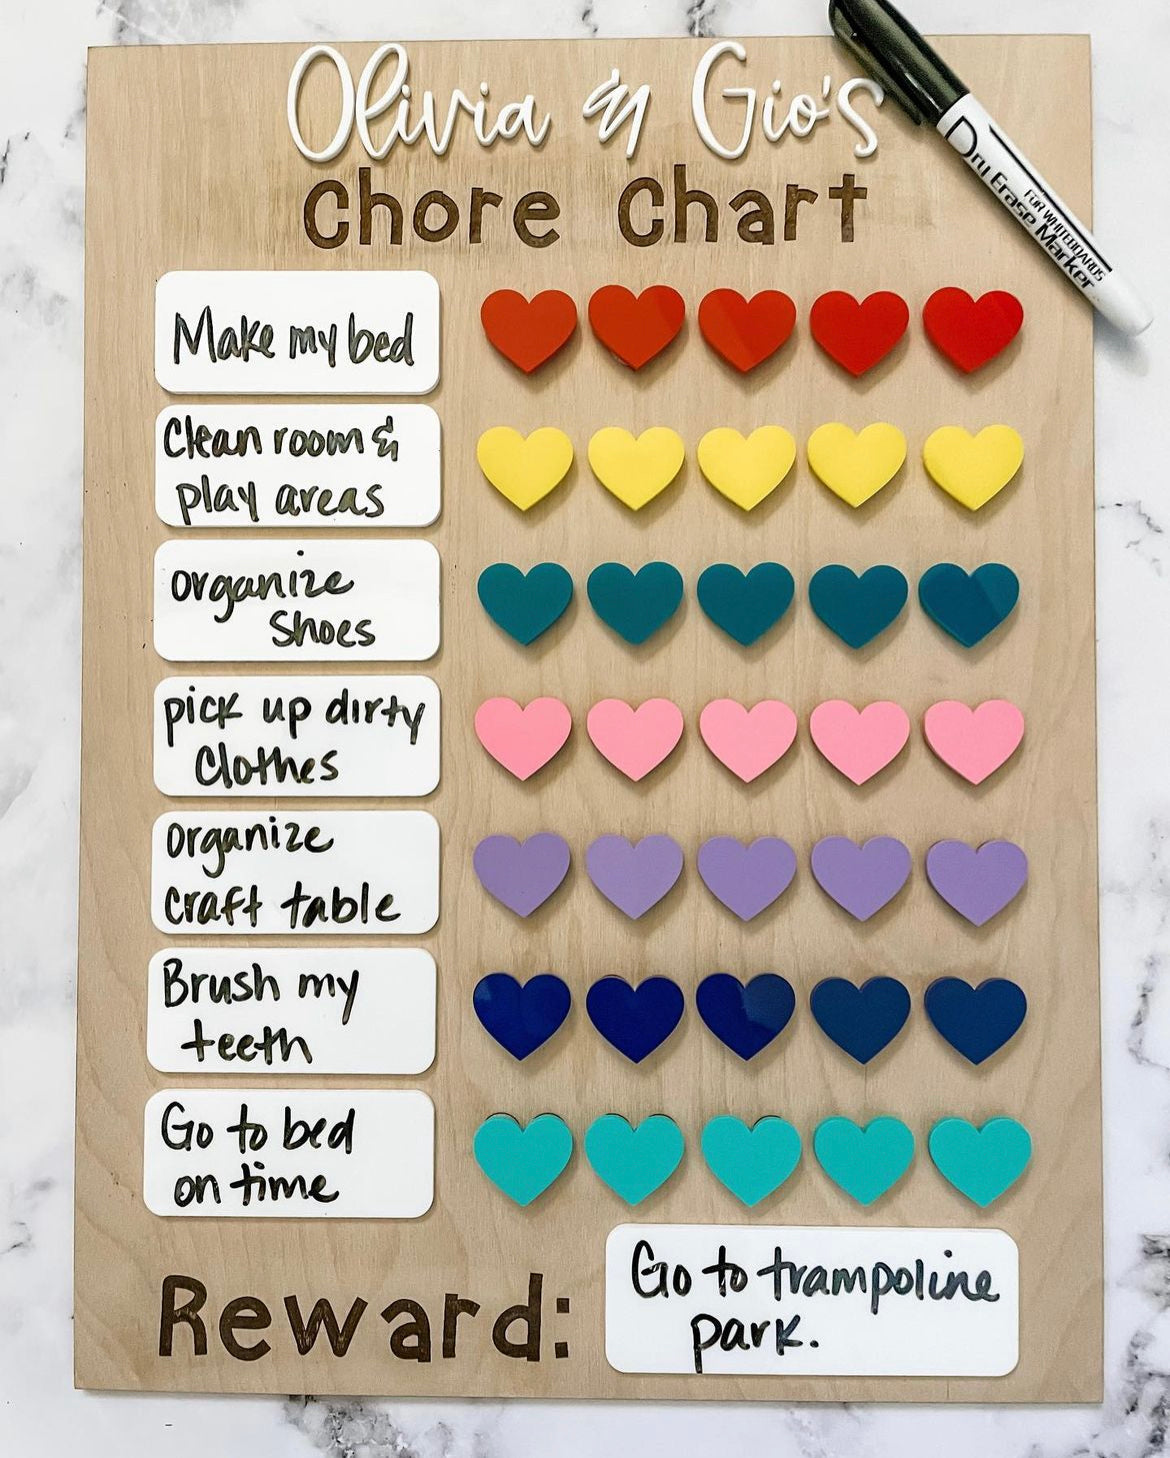 Olivia & Gio's
Chore Chart
Dry Erase Marker
FOR WHITEBOARDS
Make my bed
Clean room &
play areas
organize
Shoes
pick up dirty
Clothes
organize
craft table
Brush my
teeth
Go to bed
on time
Reward:
Go to trampoline
park.